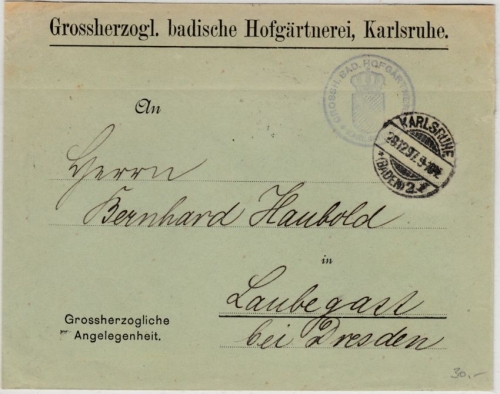 Grossherzogl. badische Hofgärtnerei, Karlsruhe.
GROSSH. BAD. HOFGÄRTNEREI
An
KARLSRUHE
28.12.97. 9-10V.
(BADEN) 2.
Herrn
Bernhard Haubold
in
Laubegast
bei Dresden
Grossherzogliche
Angelegenheit.
30.-